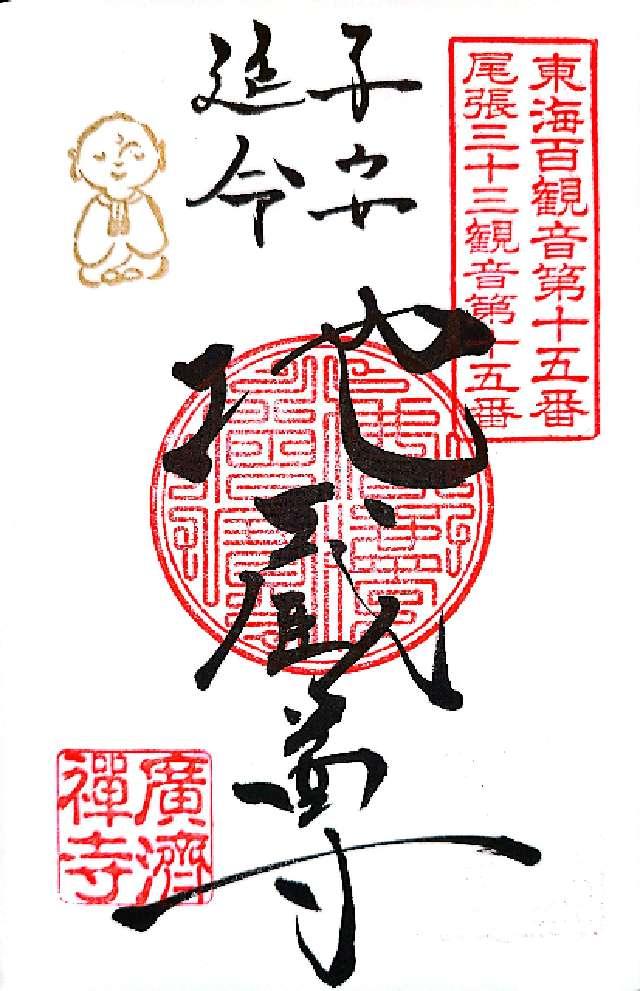 東海百観音第十五番
尾張三十三観音第十五番
子安
延命
地蔵尊
廣濟
禪寺